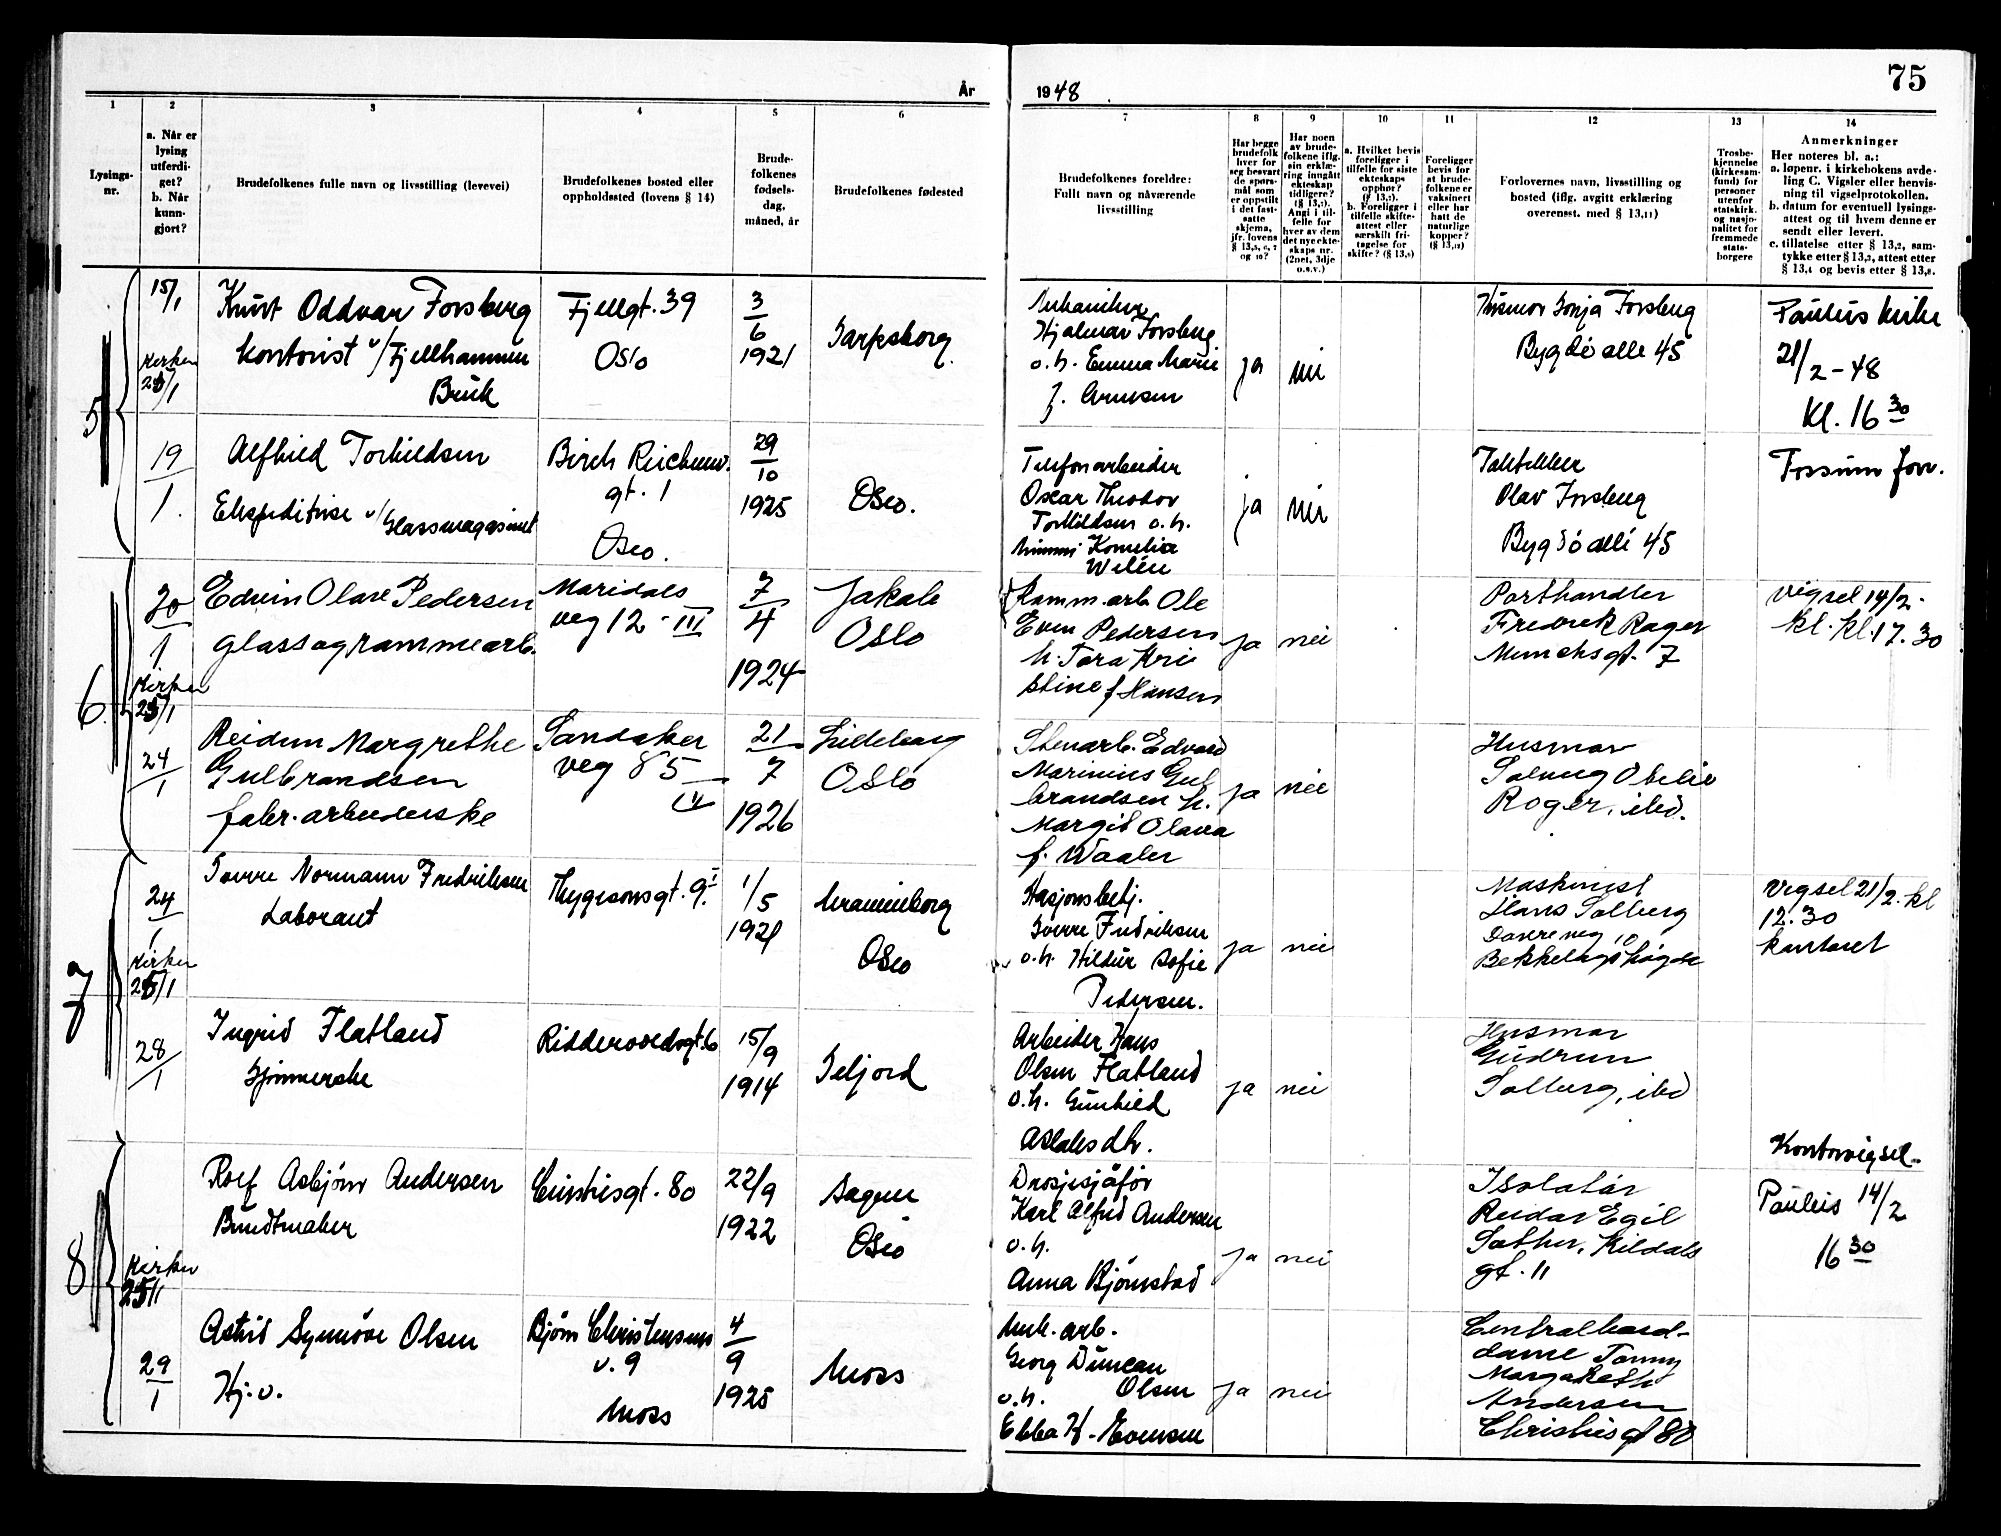 År
1948.
75
1
2
3
4
5
6
7
8
9
10
11
12
13
14
Lysings-
nr.
a. Når er
lysing
utferdi-
get?
b. Når
kunn-
gjort?
Brudefolkenes fulle navn og livsstilling (levevei)
Brudefolkenes bosted eller
oppholdssted (lovens § 14)
Brude-
folkenes
fødsels-
dag,
måned, år
Brudefolkenes fødested
Brudefolkenes foreldre:
Fullt navn og nåværende
livsstilling
Har begge
brudefolk
hver for
seg besvart
de spørs-
mål som
er oppstilt
i det fast-
satte
skjema,
jfr. lovens
§ 13,5, 6, 7
og 10?
Har noen
av brude-
folkene iflg.
sin erklæ-
ring inngått
ekteskap
tidligere?
(§ 13,7).
Angi i til-
felle for
hver av dem
det nye ekte-
skaps nr.
(2net, 3dje
o.s.v.)
a. Hvilket bevis
foreligger i
tilfelle for siste
ekteskaps
opphør?
(§ 13,7).
b. Foreligger i
tilfelle skifte-
attest eller
særskilt fri-
tagelse for
skifte? (§ 13,9)
Foreligger
bevis for
at brude-
folkene er
vaksinert
eller har
hatt de
naturlige
kopper?
(§ 13,12)
Forlovernes navn, livsstilling og
bosted (iflg. avgitt erklæring
overensst. med § 13,11)
Trosbe-
kjennelse
(kirkesam-
fund) for
personer
utenfor
statskirk.
og nasjo-
nalitet for
fremmede
stats-
borgere
Anmerkninger
Her noteres bl. a.:
a. løpenr. i kirkebokens avde-
ling C. Vigsler eller henvis-
ning til vigselprotokollen.
b. datum for eventuell lysings-
attest og til hvem denne er
sendt eller levert.
c. tillatelse etter § 13,2, sam-
tykke etter § 13,3, attest etter
§ 13,4 og bevis etter § 13,8.
5
15/1
Kirken
25/1
Kurt Oddvar Forsberg
Kontorist v/Fjellhammer
Bruk
Fjellgt. 39
Oslo
3
6
1921
Sarpsborg.
Mekaniker
Hjalmar Forsberg
o.h. Emma Marie
f. Arnesen
ja
nei
Husmor Sonja Forsberg
Bygdø alle 45
Paulus kirke
21/2-48
Kl. 16 30
19
1.
Alfhild Torkildsen
Ekspeditrise v/Glassmagasinet
Birch Reichenw.
gt. 1
Oslo.
29
10
1925
Oslo.
Telefonarbeider
Oscar Theodor
Torkildsen o.h.
Mimmi Kornelia
Welén
ja
nei
Olav Forsberg
Bygdø allé 45
Fossum forr.
6.
20
1.
Kirken
25/1
Edvin Olav Pedersen
glassogrammearb.
Maridals
veg 12-III
7
4
1924
Jakob
Oslo
Komm.arb Ole
Even Pedersen
h. Tora Kri
stine f Hansen
ja
nei
Porthandler
Fredrik Roger
Munchsgt. 7
Vigsel 14/2.
kl. kl. 17.30
24
1
Reidun Margrethe
Gulbrandsen
fabr.arbeiderske
Sandaker
veg 85
IV
21
7
1926
Lilleborg
Oslo
Stenarb. Edvard
Marinius Gul
brandsen h.
Margit Olava
f. Waaler
ja
nei
Husmor
Solveig Otelie
Roger, ibd.
7
24
1
Kirken
25/1
Sverre Normann Fredriksen
Laborant
Thygesonsgt. 9.I
1/5
1921
Uranienborg
Oslo
Stasjonsbetj.
Sverre Fredriksen
o.h. Hildur Sofie
Pedersen.
ja
nei
Maskinist
Hans Solberg
Dovreveg 10
Bekkelagshøgda
Vigsel 21/2. kl
12.30
kontoret
28
1
Ingrid Flatland
Syerske
Riddervoldsgt. 6
15/9
1914
Seljord
Arbeider Hans
Olsen Flatland
o.h. Gunhild
Aslaksdtr.
ja
nei
Husmor
Gudrun
Solberg, ibd
8
Kirken
25/1
Rolf Asbjörn Andersen
Buntmaker
Christiesgt. 80
22/9
1922
Sagene
Oslo
Drosjesjåför
Karl Alfred Andersen
o.h.
Anna Bjørnstad
ja
nei
Isolatör
Reidar Egil
Sæther, Kildals
gt. 11
Kontorvigsel.
Paulus 14/2
16 30
29
1
Astrid Synnöve Olsen
Hj.v.
Bjørn Christensens
v. 9
Moss
4
9
1925
Moss
Mek. arb.
Georg Duncan
Olsen
o.h.
Ebba K. Evensen
ja
nei
Centralbord-
dame Tonny
Margarethe
Andersen
Christies gt 80